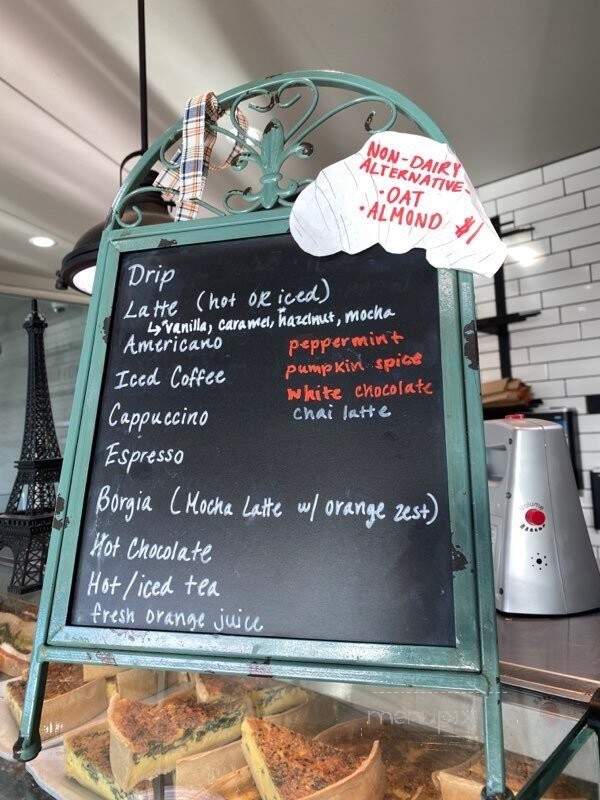 NON-DAIRY
ALTERNATIVE-
• OAT
• ALMOND $1
Drip
Latte (hot OR iced)
↳ vanilla, caramel, hazelnut, mocha
Americano
peppermint
pumpkin spice
Iced Coffee
white chocolate
chai latte
Cappuccino
Espresso
Borgia (Mocha Latte w/ orange zest)
Hot Chocolate
Hot/iced tea
fresh orange juice
Volume
menupix